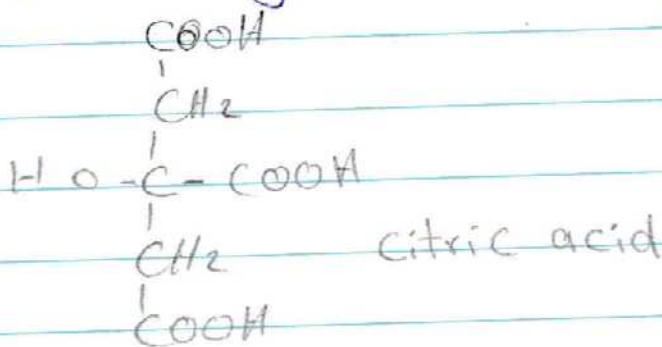 COOH
CH2
HO-C-COOH
CH2 Citric acid
COOH